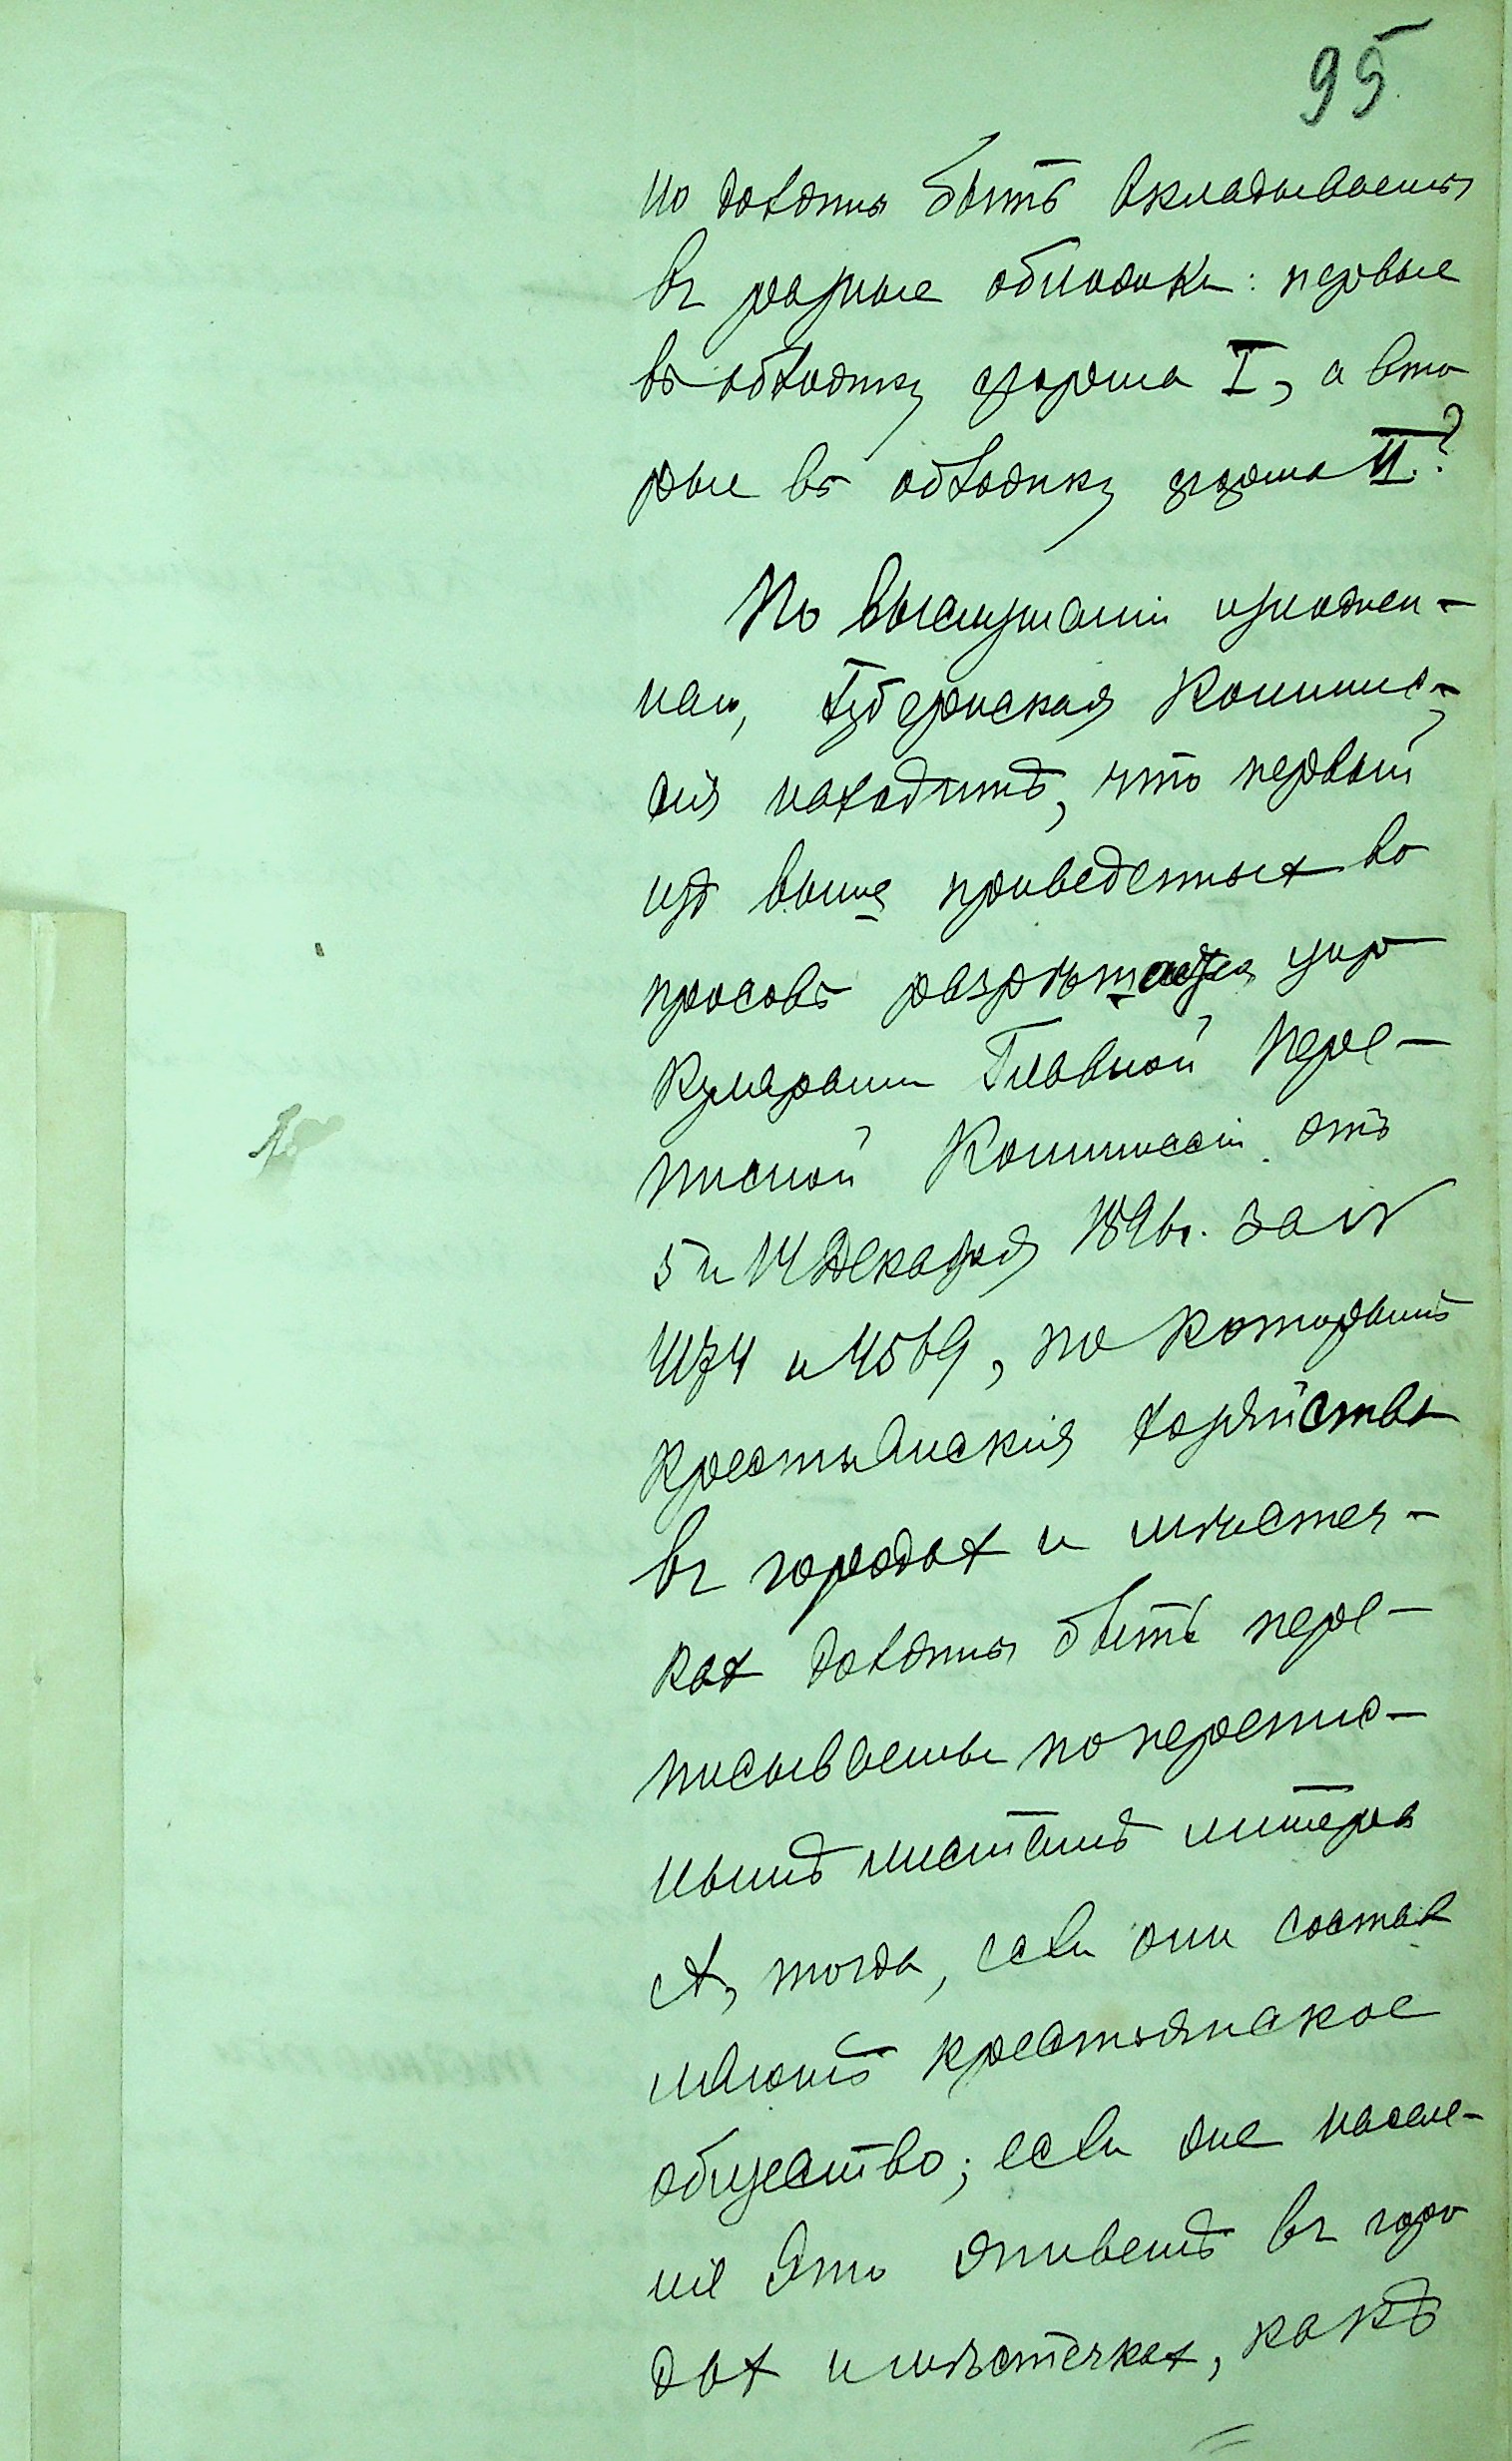 95
но должны быть вкладываемы
въ разные обложки: первые
въ обложку форма I, а вто
рые въ обложку форма II.?
По выслушании изложен-
наго, Губернская Коммис-
сия находитъ, что первый
изъ выше приведенных во
просовъ разрѣшается цир
кулярами Главной Пере-
писной Коммиссіи отъ
5 и 14 Декабря 1896 г. за №
4174 и 4569, по которымъ
крестьянскія хозяйства
въ городах и мѣстеч-
ках должны быть пере-
писываемы по перепис-
нымъ листамъ литера
А, тогда, если они состав
ляютъ крестьянское
общество; если же населе-
ніе это живетъ въ горо
дах и мѣстечках, какъ